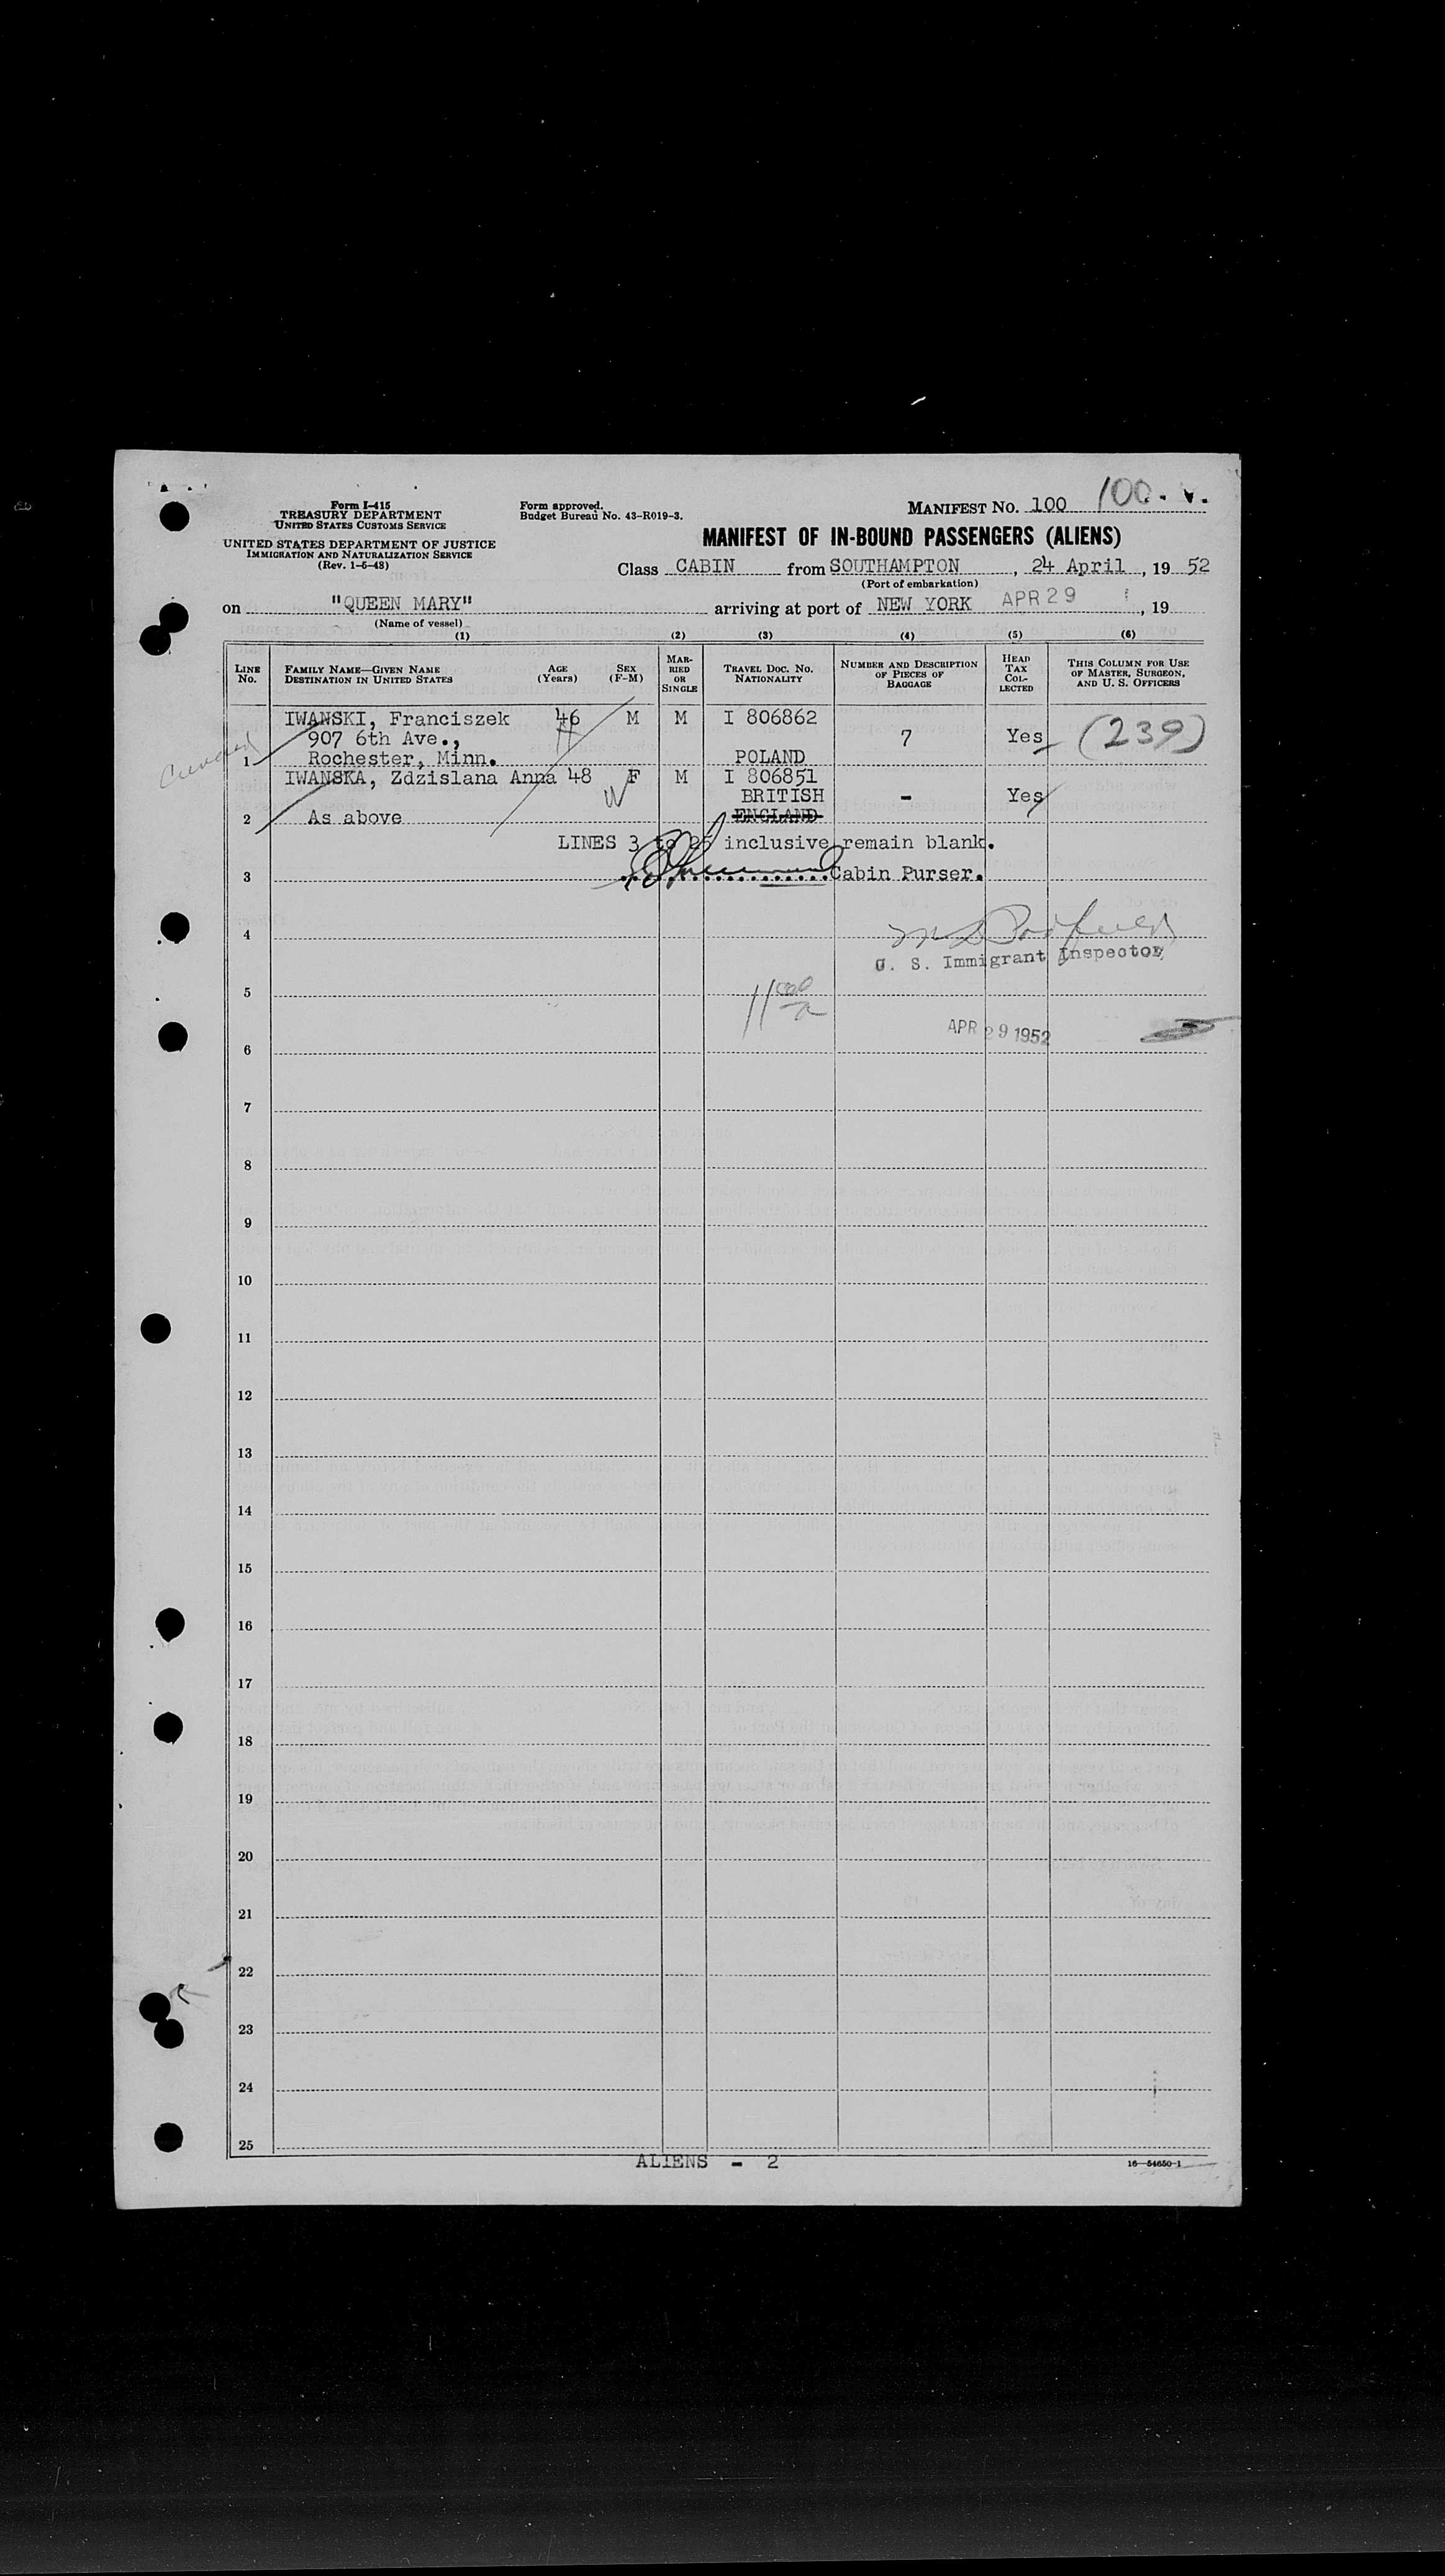 Form I-415
TREASURY DEPARTMENT
UNITED STATES CUSTOMS SERVICE
UNITED STATES DEPARTMENT OF JUSTICE
IMMIGRATION AND NATURALIZATION SERVICE
(Rev. 1-6-48)
Form approved.
Budget Bureau No. 43-R019-3.
MANIFEST NO. 100 100
MANIFEST OF IN-BOUND PASSENGERS (ALIENS)
Class CABIN from SOUTHAMPTON, 24 April, 19 52
(Port of embarkation)
on "QUEEN MARY" arriving at port of NEW YORK APR 29, 19
(Name of vessel)
(1) (2) (3) (4) (5) (6)
LINE No. FAMILY NAME—GIVEN NAME DESTINATION IN UNITED STATES AGE (Years) SEX (F-M) MARRIED OR SINGLE TRAVEL DOC. NO. NATIONALITY NUMBER AND DESCRIPTION OF PIECES OF BAGGAGE HEAD TAX COLLECTED THIS COLUMN FOR USE OF MASTER, SURGEON, AND U. S. OFFICERS
IWANSKI, Franciszek 46 M M I 806862
907 6th Ave., 7 Yes (239)
1 Rochester, Minn. POLAND
IWANSKA, Zdzislana Anna 48 F M I 806851
BRITISH - Yes
2 As above ENGLAND
LINES 3 to 25 inclusive remain blank.
3 Cabin Purser.
4
U. S. Immigrant Inspector
5
APR 29 1952
6
7
8
9
10
11
12
13
14
15
16
17
18
19
20
21
22
23
24
25
ALIENS - 2
16—54650-1